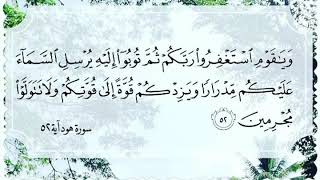 وَيَـٰقَوْمِ ٱسْتَغْفِرُوا۟ رَبَّكُمْ ثُمَّ تُوبُوٓا۟ إِلَيْهِ يُرْسِلِ ٱلسَّمَآءَ
عَلَيْكُم مِّدْرَارًا وَيَزِدْكُمْ قُوَّةً إِلَىٰ قُوَّتِكُمْ وَلَا تَتَوَلَّوْا۟
مُجْرِمِينَ ٥٢
سورة هود آية ٥٢